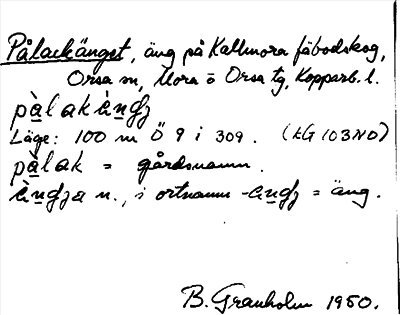 Pålackänget, äng på Kallmora fäbodskog,
Orsa sn, Mora o Orsa tg, Kopparb. l.
pàlakèngj
Läge: 100 m Ö 9 i 309. (KG 103 NO)
pàlak = gårdsnamn.
èngja n., i ortnamn -èngj = äng.
B. Granholm 1950.